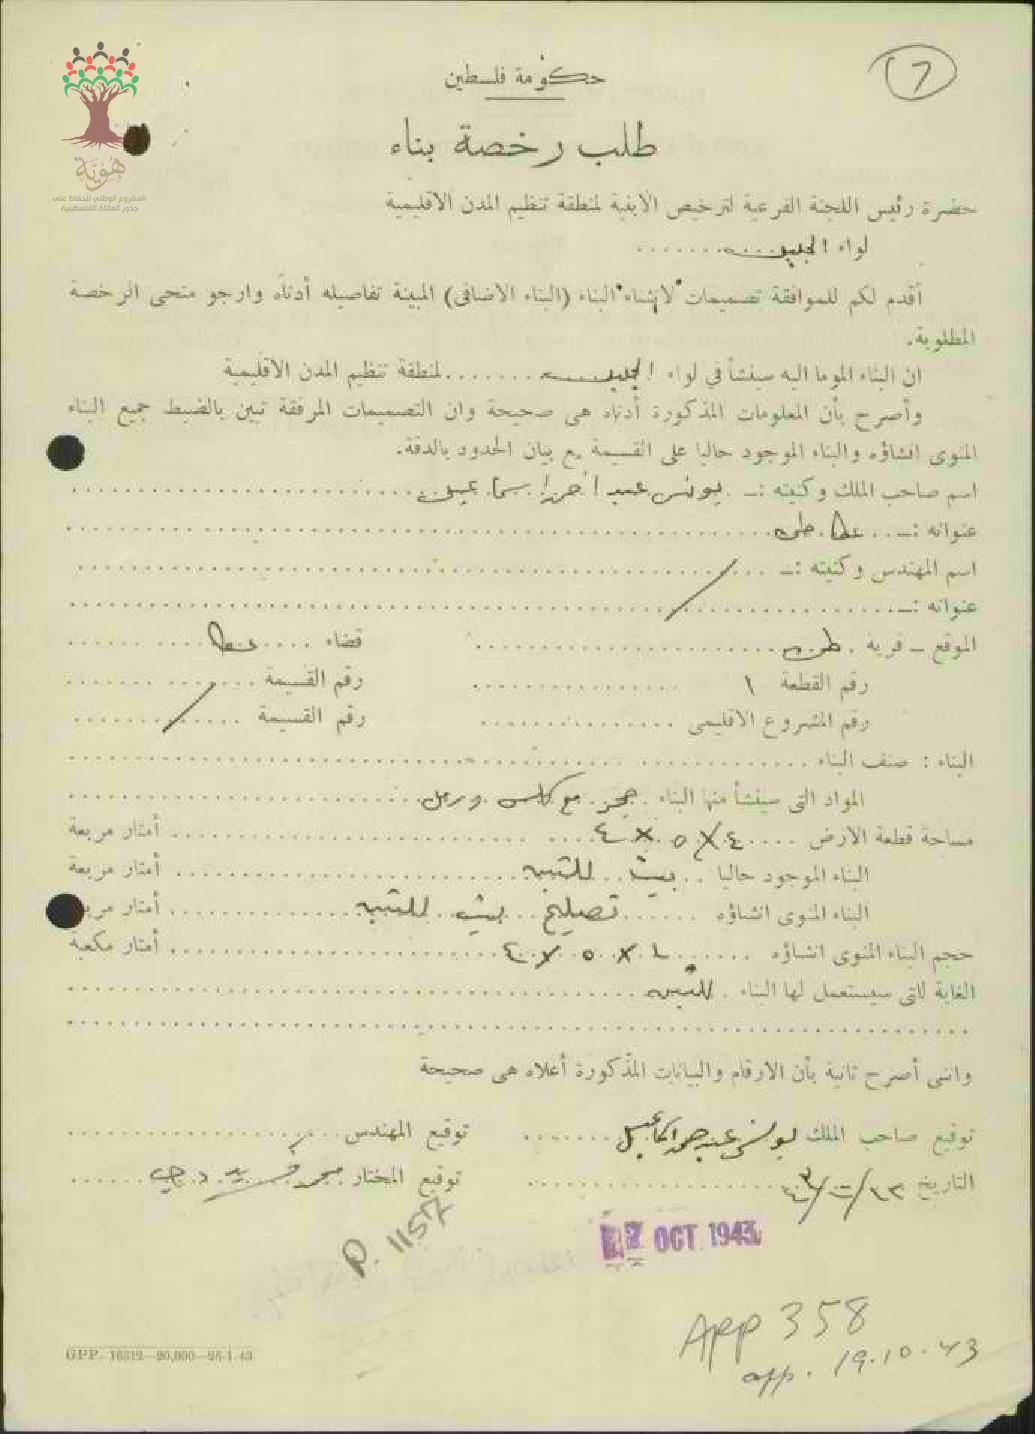 7
حكومة فلسطين
طلب رخصة بناء
هُوِيَّة
المشروع الوطني للحفاظ على
جذور العائلة الفلسطينية
حضرة رئيس اللجنة الفرعية لترخيص الابنية لمنطقة تنظيم المدن الاقليمية
لواء الجليل
أقدم لكم للموافقة تصميمات لانشاء البناء (البناء الاضافى) المبينة تفاصيله أدناه وارجو منحى الرخصة
المطلوبة.
ان البناء الموما اليه سينشأ في لواء الجليل لمنطقة تنظيم المدن الاقليمية
وأصرح بأن المعلومات المذكورة أدناه هى صحيحة وان التصميمات المرفقة تبين بالضبط جميع البناء
المنوى انشاؤه والبناء الموجود حاليا على القسيمة مع بيان الحدود بالدقة.
اسم صاحب الملك وكنيته :ـ يونس عبد
عنوانه :ـ عكا
اسم المهندس وكنيته :ـ
عنوانه :ـ
الموقع ـ قرية قضاء عكا
رقم القطعة ١ رقم القسيمة
رقم المشروع الاقليمى رقم القسيمة
البناء : صنف البناء
المواد التى سينشأ منها البناء حجر مع كلس ورمل
مساحة قطعة الارض ٤ × ٥ × ٤ أمتار مربعة
البناء الموجود حاليا بيت للتبن أمتار مربعة
البناء المنوى انشاؤه تصليح بيت للتبن أمتار مربعة
حجم البناء المنوى انشاؤه × ٥ × ٤ أمتار مكعبة
الغاية التى سيستعمل لها البناء للتبن
وانى أصرح ثانية بأن الارقام والبيانات المذكورة أعلاه هى صحيحة
توقيع صاحب الملك يونس عبد توقيع المهندس
التاريخ توقيع المختار
P. 1157
OCT 1943
App 358
app. 19.10.43
GPP. 16312—20,000—26-1-43